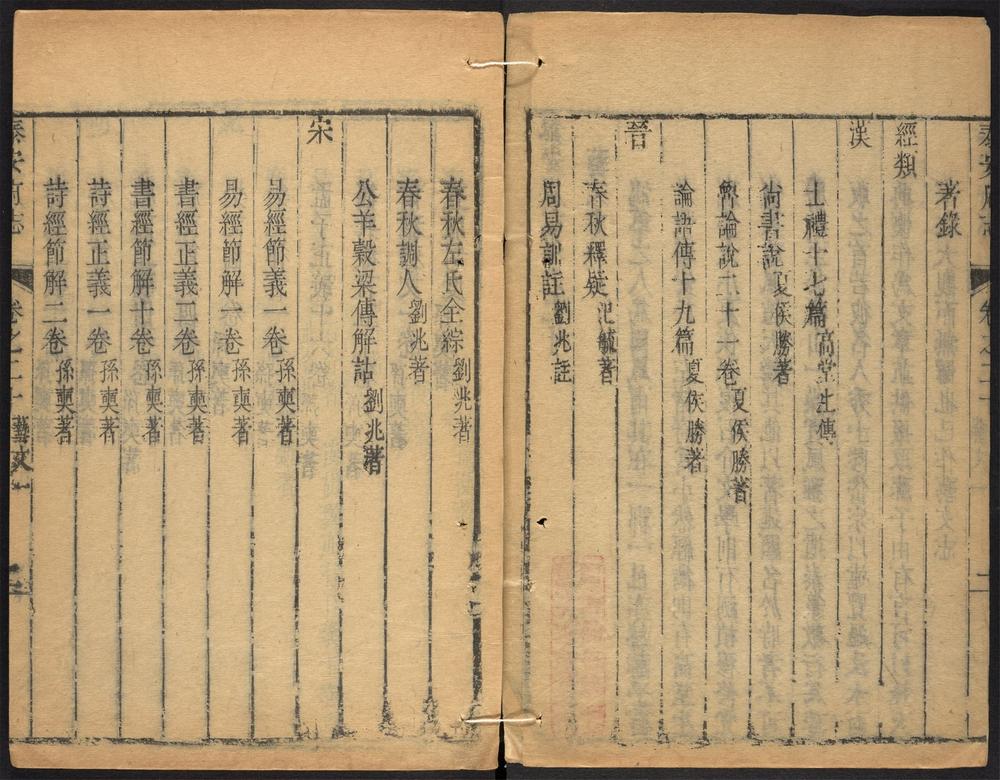 著錄
經類
漢
士禮十七篇 高堂生傳
尚書說 夏侯勝著
魯論說二十一卷 夏侯勝著
論語傳十九篇 夏侯勝著
晉
春秋釋疑 氾毓著
周易訓註 劉兆註
春秋左氏全綜 劉兆著
春秋調人 劉兆著
公羊穀梁傳解詁 劉兆著
宋
易經節義一卷 孫奭著
易經節解六卷 孫奭著
書經正義四卷 孫奭著
書經節解十卷 孫奭著
詩經正義一卷 孫奭著
詩經節解二卷 孫奭著
泰安府志 卷之二十 藝文一 二